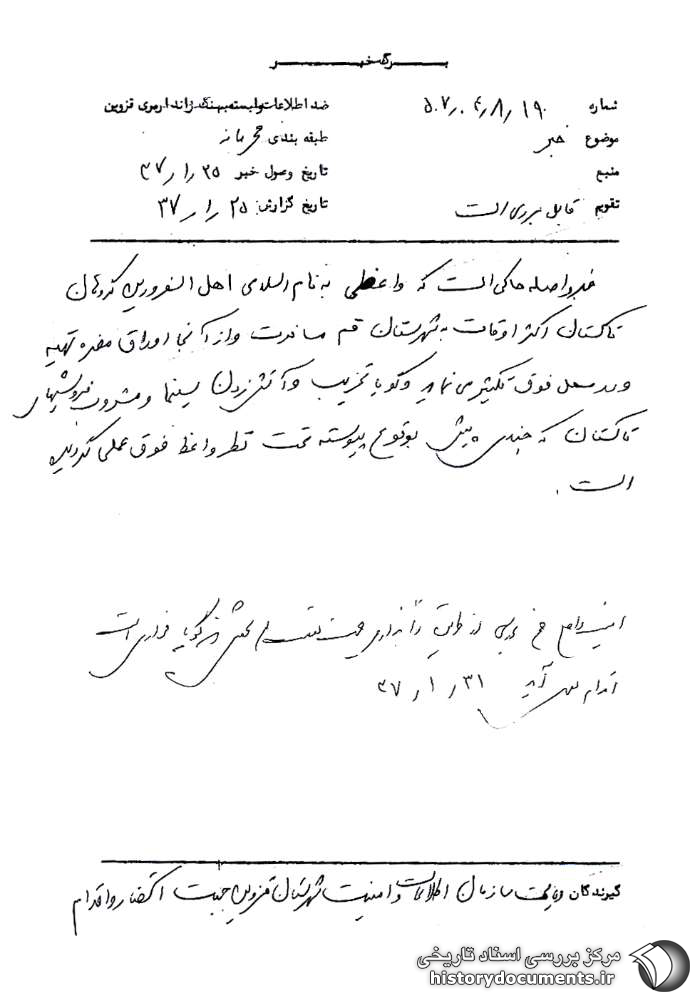 برگ خبر
شماره ۵۰۷٫۰۴٫۸٫۱۹۰ ضد اطلاعات وابسته به هنگ ژاندارمری قزوین
موضوع خبر طبقه بندی محرمانه
منبع تاریخ وصول خبر ۳۷٫۱٫۲۵
تقویم قابل بررسی است تاریخ گزارش ۳۷٫۱٫۲۵
خبر واصله حاکی است که واعظی به نام اسلامی اهل اسفرورین
تاکستان اکثر اوقات به شهرستان قم مسافرت و از آنجا اوراق مضره تهیه
و در محل فوق تکثیر می نماید و گویا تخریب و آتش زدن سینما و مشروب فروشیهای
تاکستان که چندی پیش بوقوع پیوسته تحت نظر واعظ فوق عملی گردیده
است .
از گویا فراری است
اقدام آید ۳۷٫۱٫۳۱
گیرندگان ریاست سازمان اطلاعات و امنیت شهرستان قزوین جهت استحضار و اقدام
مرکز بررسی اسناد تاریخی
historydocuments.ir